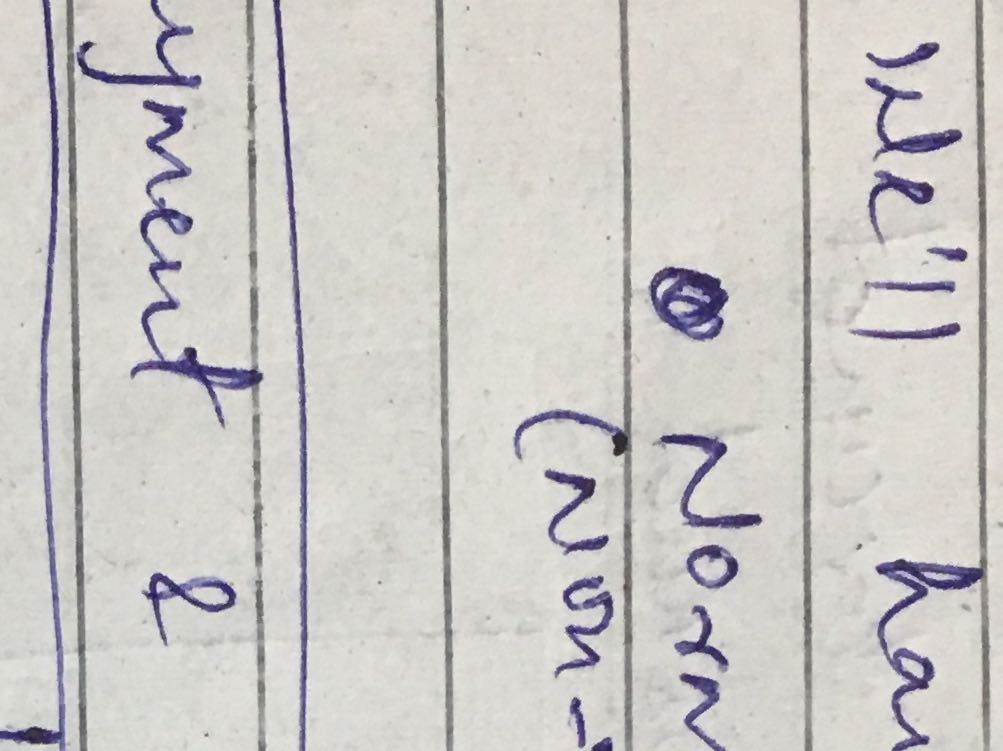 We'll ha
• Norm
(Non-
yment &